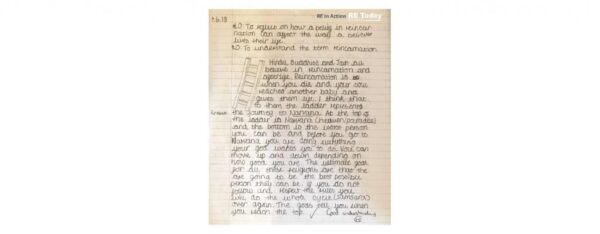 RE in Action RE Today
7.6.18
L.O. To reflect on how a belief in reincar
nation can affect the way a believer
lives their life.
L.O. To understand the term reincarnation
Hindu, Buddhist and Jain all
believe in reincarnation and
Reincarnation is
when you die and your soul
reached another baby and
gives them life. I think that
to them the ladder represents
the journey to Narvana. At the top of
the ladder is Narvana (heaven/paradise)
and the bottom is the worse person
you can be and before you go to
Narvana you are doing everything
your god wants you to do. You can
move up and down depending on
how good you are. The ultimate goal
for all these religions are that the
are going to be the best possible
person they can be. If you do not
follow and respect the rules you
will do the whole cycle (Samsara)
over again. The gods tell you when
you reach the top. ✓ Good understanding